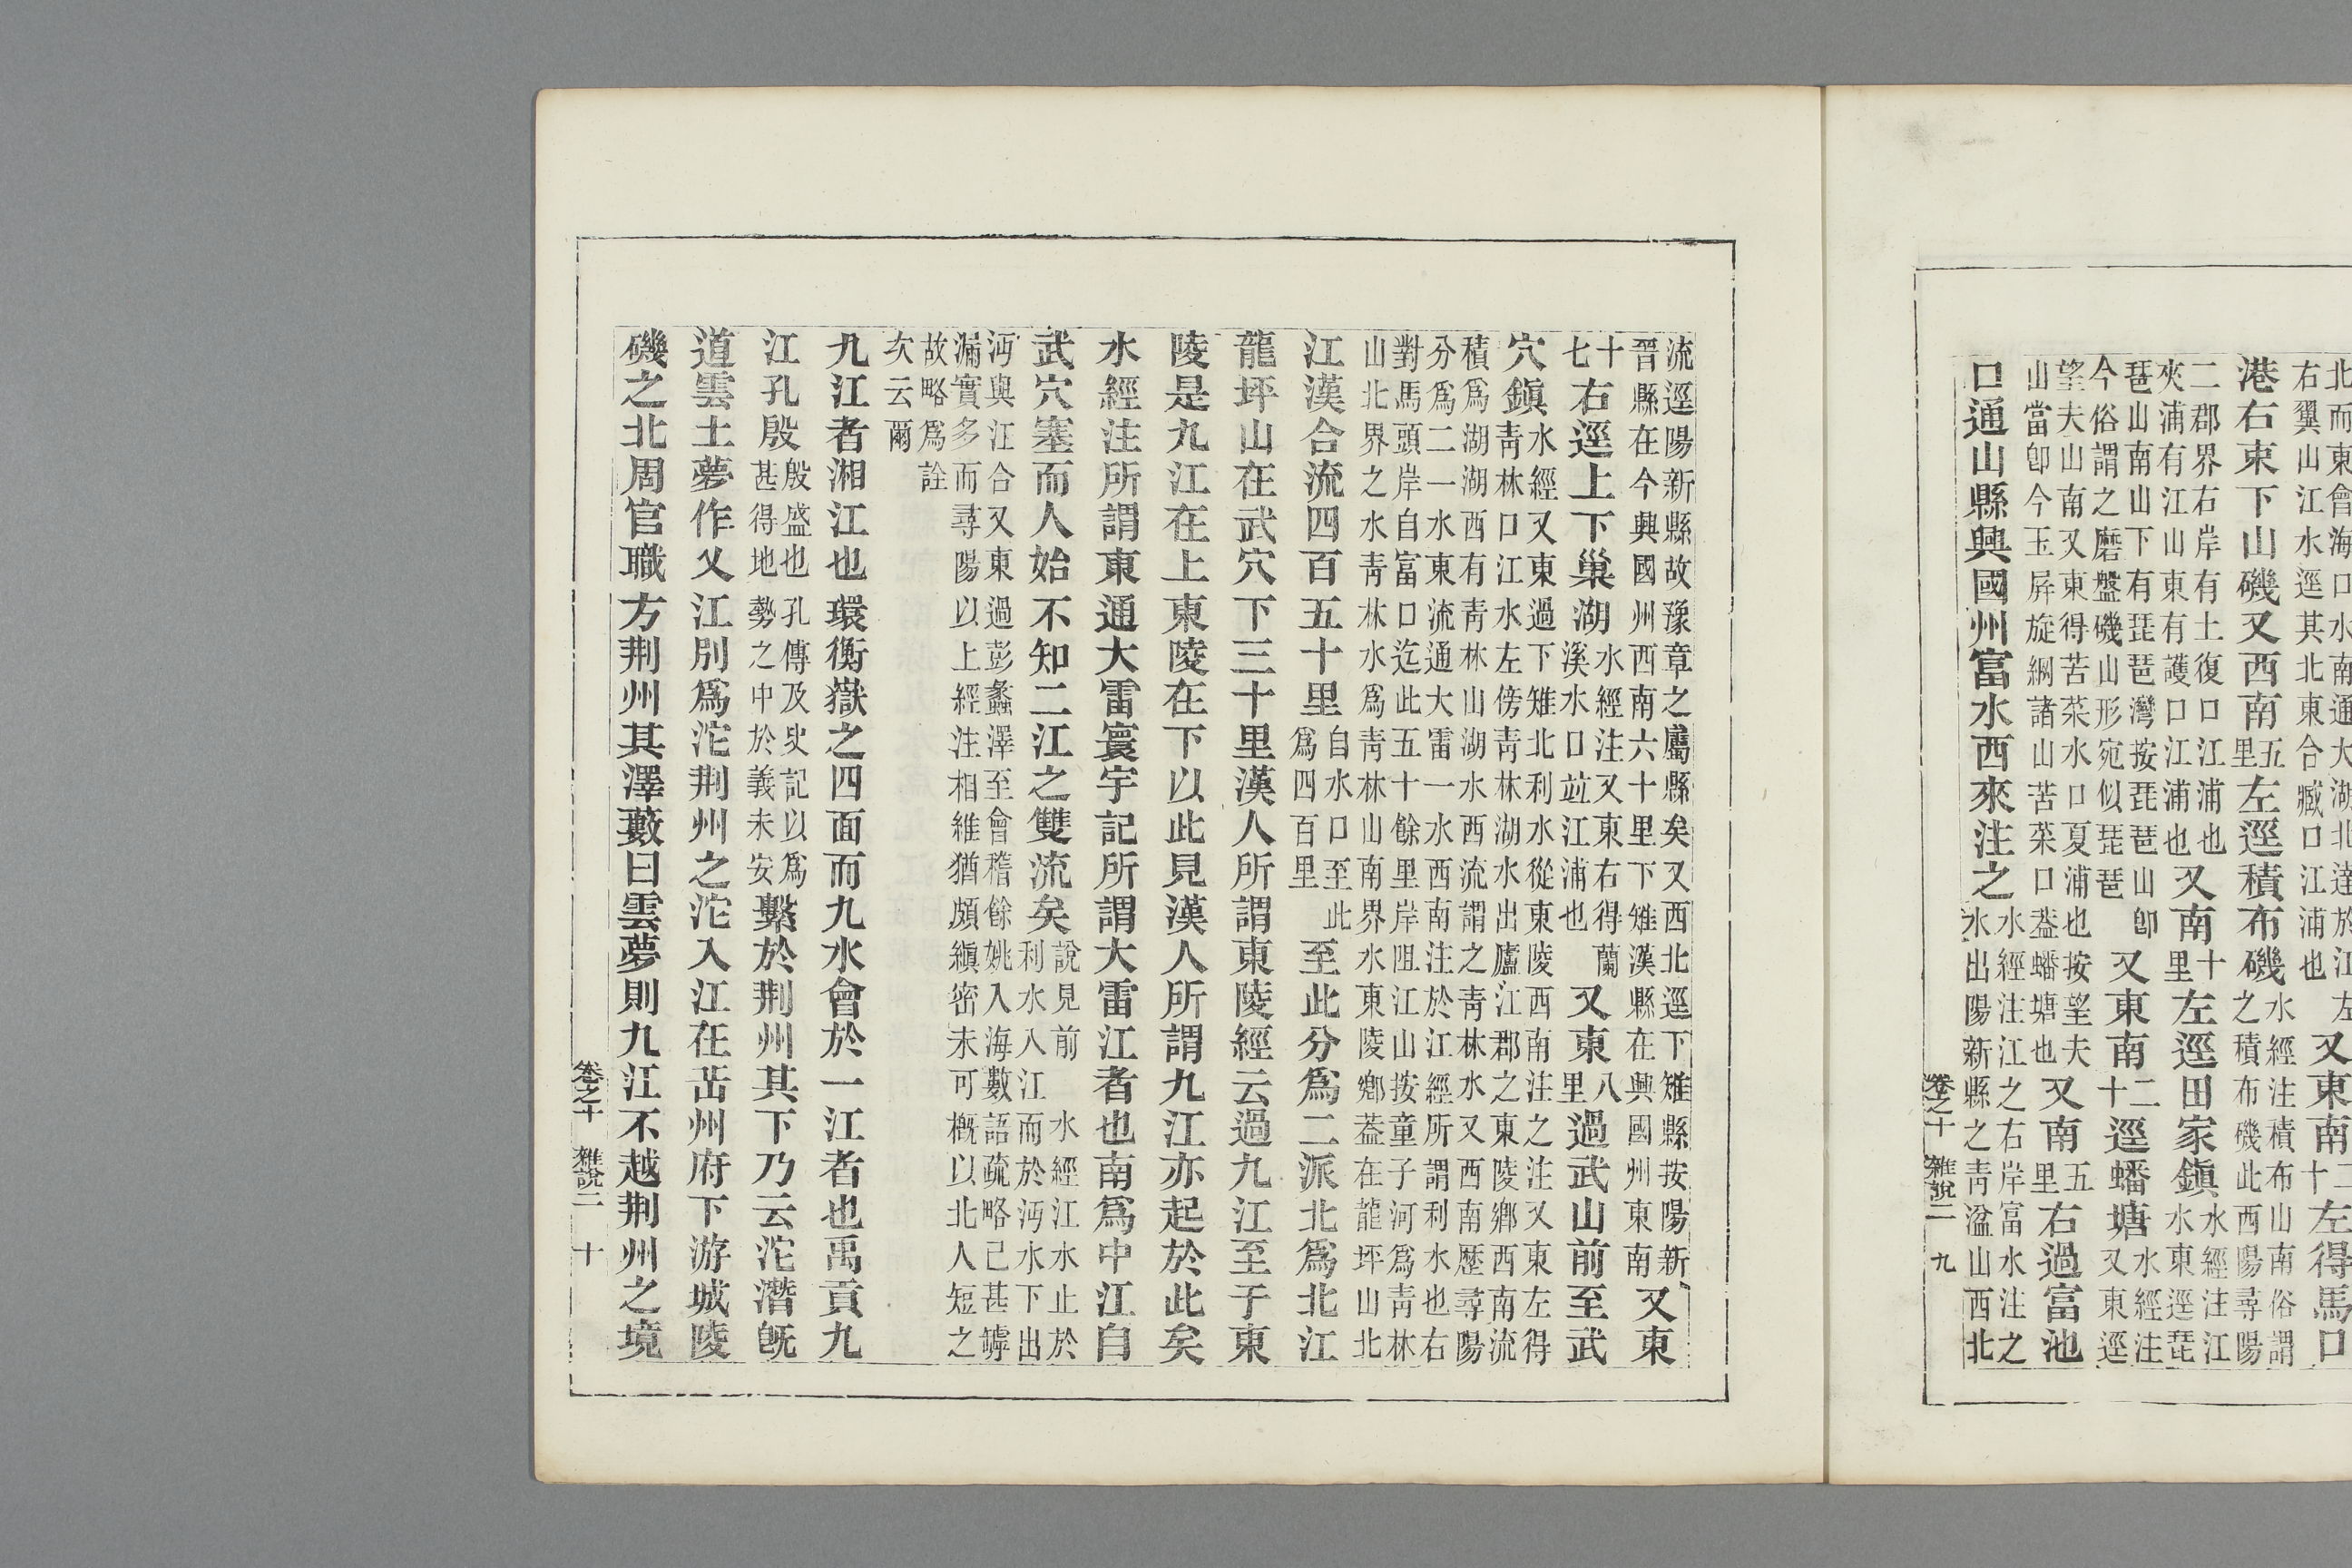 北而東會海口水南通大湖北達於江左
右翼山江水逕其北東合臧口江浦也
又東南
十二
左得馬口
港右東下山磯又西南
五
里
左逕積布磯
水經注積布山南俗謂
之積布磯此西陽尋陽
二郡界右岸有土復口江浦也
夾浦有江山東有護口江浦也
又南
十
里
左逕田家鎮
水經注江
水東逕琵
琶山南山下有琵琶灣按琵琶山卽
今俗謂之磨盤磯山形宛似琵琶
又東南
二
十
逕蟠塘
水經注
又東逕
望夫山南又東得苦菜水口夏浦也按望夫
山當卽今玉屏旋綱諸山苦菜口葢蟠塘也
又南
五
里
右過富池
口通山縣興國州富水西來注之
水經注江之右岸富水注之
水出陽新縣之青湓山西北
卷之十 雜說二 九
流逕陽新縣故豫章之屬縣矣又西北逕下雉縣按陽新
晉縣在今興國州西南六十里下雉漢縣在興國州東南
又東
十
七
右逕上下巢湖
水經注又東右得蘭
溪水口竝江浦也
又東
八
里
過武山前至武
穴鎮
水經又東過下雉北利水從東陵西南注之注又東左得
青林口江水左傍青林湖水出廬江郡之東陵鄉西南流
積爲湖湖西有青林山湖水西流謂之青林水又西南歷尋陽
分爲二一水東流通大雷一水西南注於江經所謂利水也右
對馬頭岸自富口迄此五十餘里岸阻江山按童子河爲青林
山北界之水青林水爲青林山南界水東陵鄉葢在龍坪山北
江漢合流四百五十里
自水口至此
爲四百里
至此分爲二派北爲北江
龍坪山在武穴下三十里漢人所謂東陵經云過九江至于東
陵是九江在上東陵在下以此見漢人所謂九江亦起於此矣
水經注所謂東通大雷寰宇記所謂大雷江者也南爲中江自
武穴塞而人始不知二江之雙流矣
說見前 水經江水止於
利水入江而於沔水下出
沔與江合又東過彭蠡澤至會稽餘姚入海數語疏略已甚罅
漏實多而尋陽以上經注相維猶頗縝密未可槪以北人短之
故略爲詮
次云爾
九江者湘江也環衡嶽之四面而九水會於一江者也禹貢九
江孔殷
殷盛也孔傳及史記以爲
甚得地勢之中於義未安
繫於荆州其下乃云沱潛旣
道雲土夢作乂江別爲沱荆州之沱入江在岳州府下游城陵
磯之北周官職方荆州其澤藪曰雲夢則九江不越荆州之境
卷之十 雜說二 十